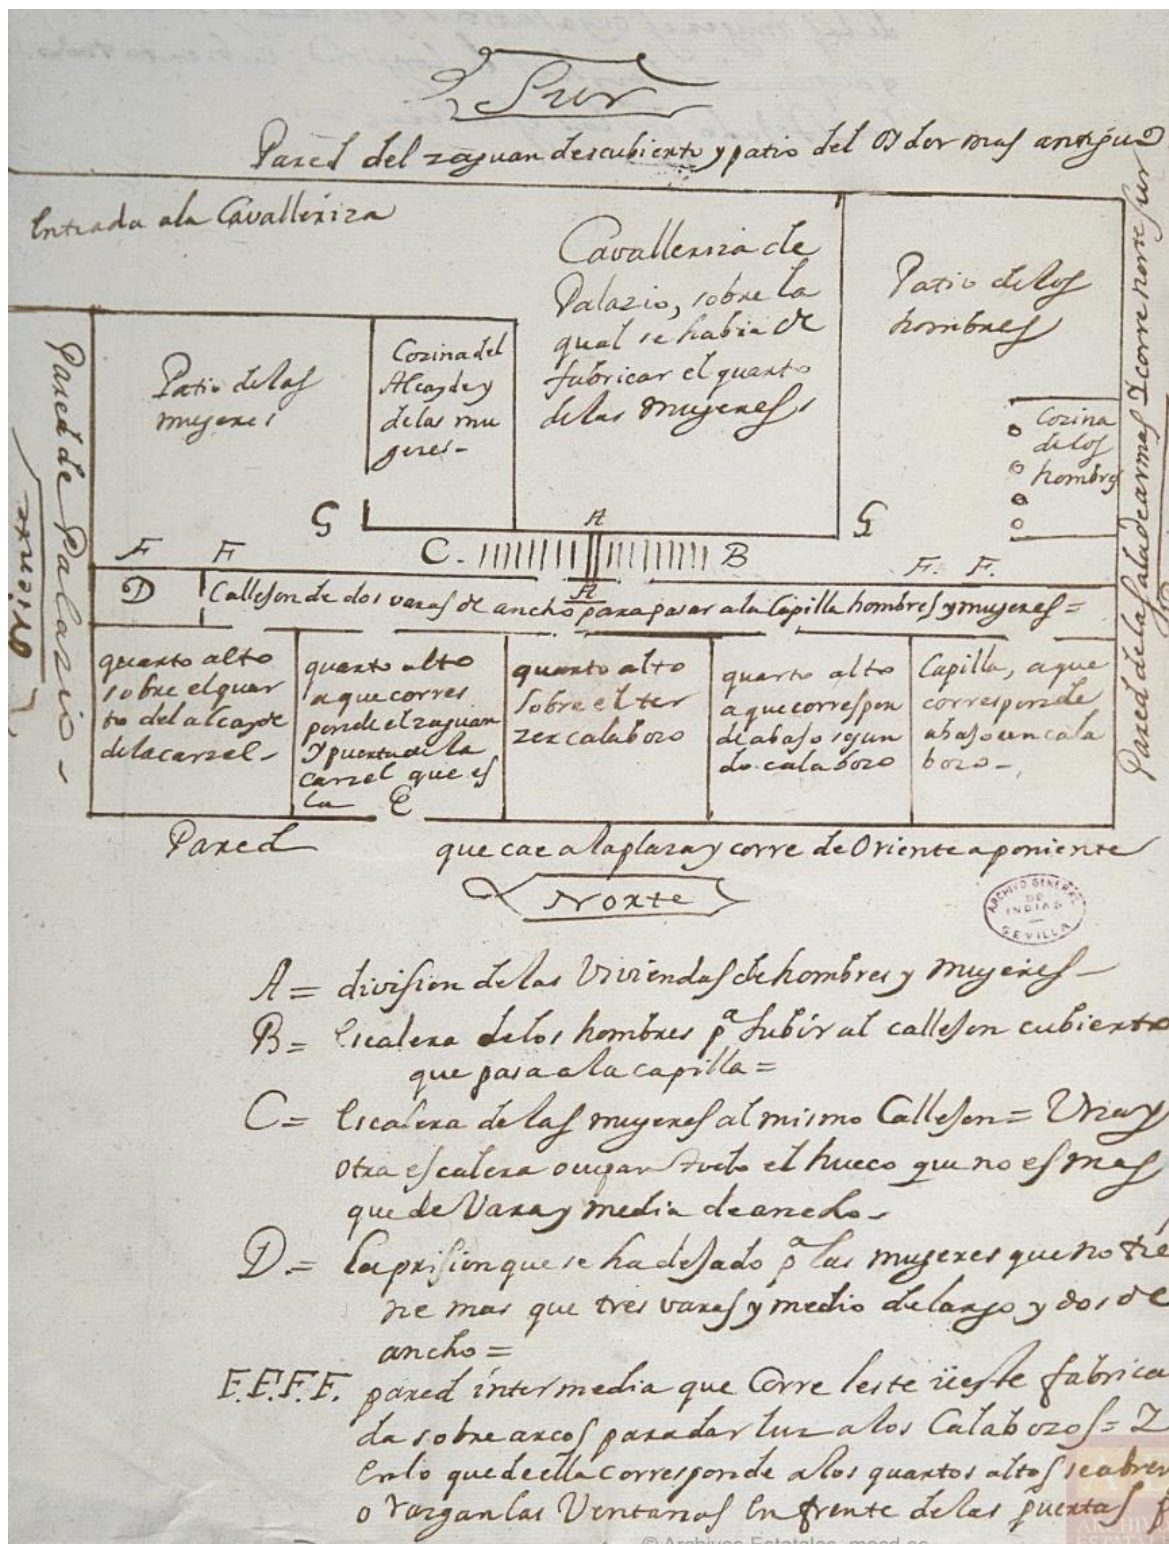 Sur
Pared del zaguan descubierto y patio del Oydor mas antiguo
Entrada ala Cavalleriza
Cavalleriza de
Palazio, sobre la
qual se habia de
fabricar el quarto
delas mugeres
Patio delos
hombres
Patio delas
mugeres
Cozina del
Alcayde y
delas mu
geres-
Cozina
delos
hombres
Pared de Palazio-
Oriente
Pared dela Sala de armas Y corre norte sur
G
G
A
F F
C.
B
F. F.
D
Callejon de dos varas de ancho para pasar ala Capilla hombres y mugeres =
A
quarto alto
sobre el quar
to del alcayde
dela carzel-
quarto alto
a que corres
ponde el zaguan
Y puerta de la
carzel que es
la E
quarto alto
sobre el ter
zer calabozo
quarto alto
a que correspon
de abajo segun
do calabozo
Capilla, a que
corresponde
abajo un cala
bozo-
Pared que cae a la plaza y corre de Oriente a poniente
Norte
ARCHIVO GENERAL
DE
INDIAS
SEVILLA
A = division delas Viviendas de hombres y mugeres-
B = Escalera delos hombres pª Subir al callejon cubierto
que pasa a la capilla =
C = Escalera de las mugeres al mismo Callejon = Una y
otra escalera ocupan todo el hueco que no es mas
que de Vara y media de ancho-
D = La prision que se ha dejado pª las mugeres que no tie
ne mas que tres varas y medio de largo y dos de
ancho =
F.F.F.F. pared intermedia que Corre leste ueste fabrica
da sobre arcos para dar luz a los Calabozos = Y
en lo que de ella corresponde a los quartos altos se abren
o razgan las Ventanas En frente de las puertas p
© Archivos Estatales, mecd.es